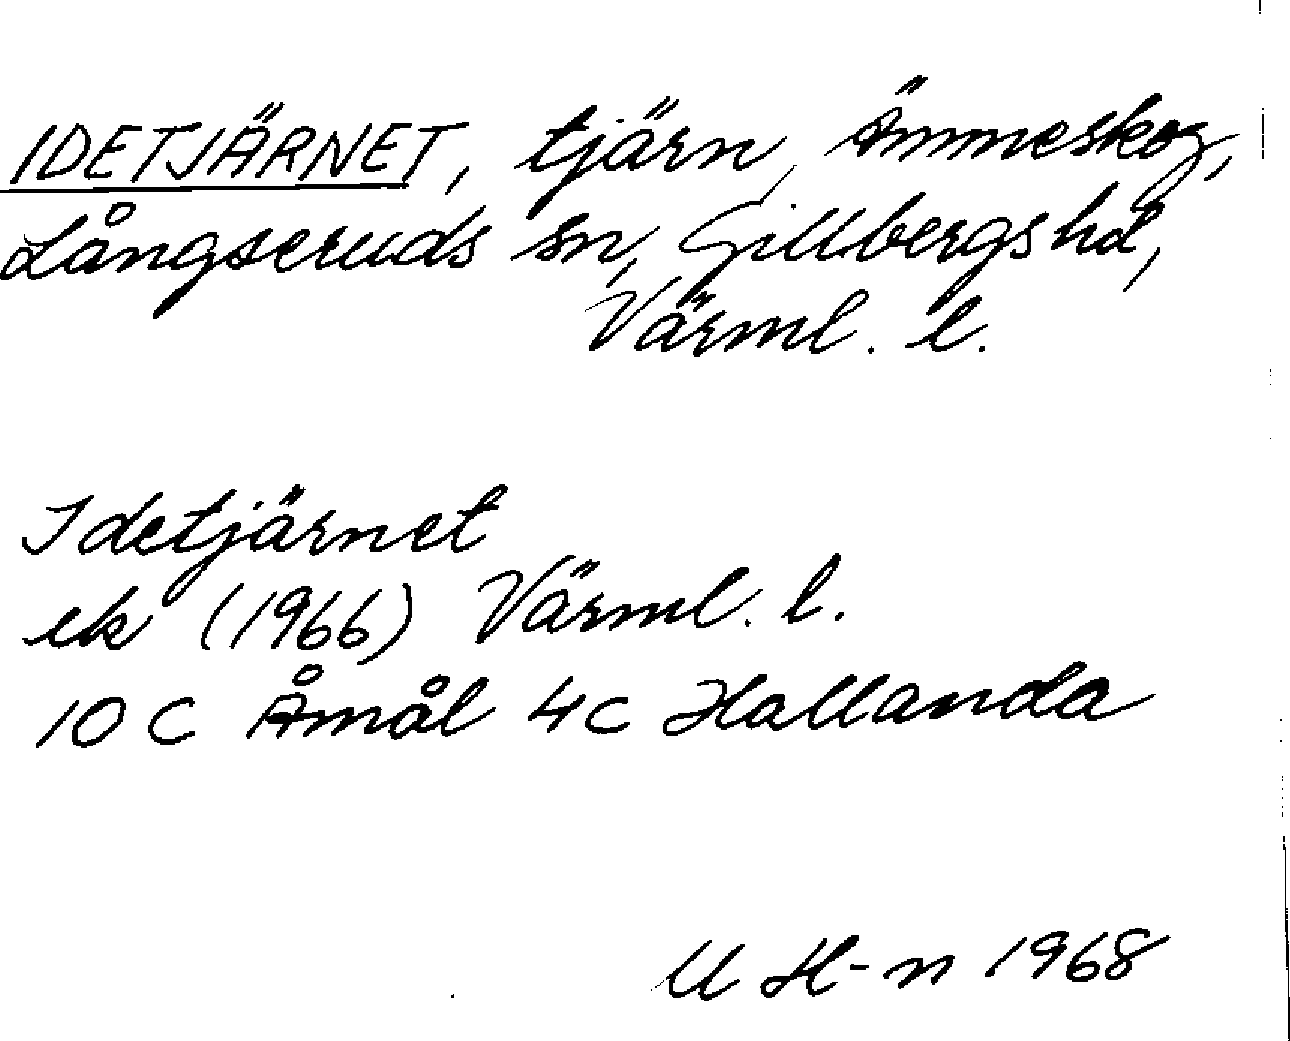 IDETJÄRNET, tjärn, Ämmeskog,
Långseruds sn, Gillbergs hd,
Värml. l.
Idetjärnet
ek (1966) Värml. l.
10 C Åmål 4c Hallanda
U H-n 1968